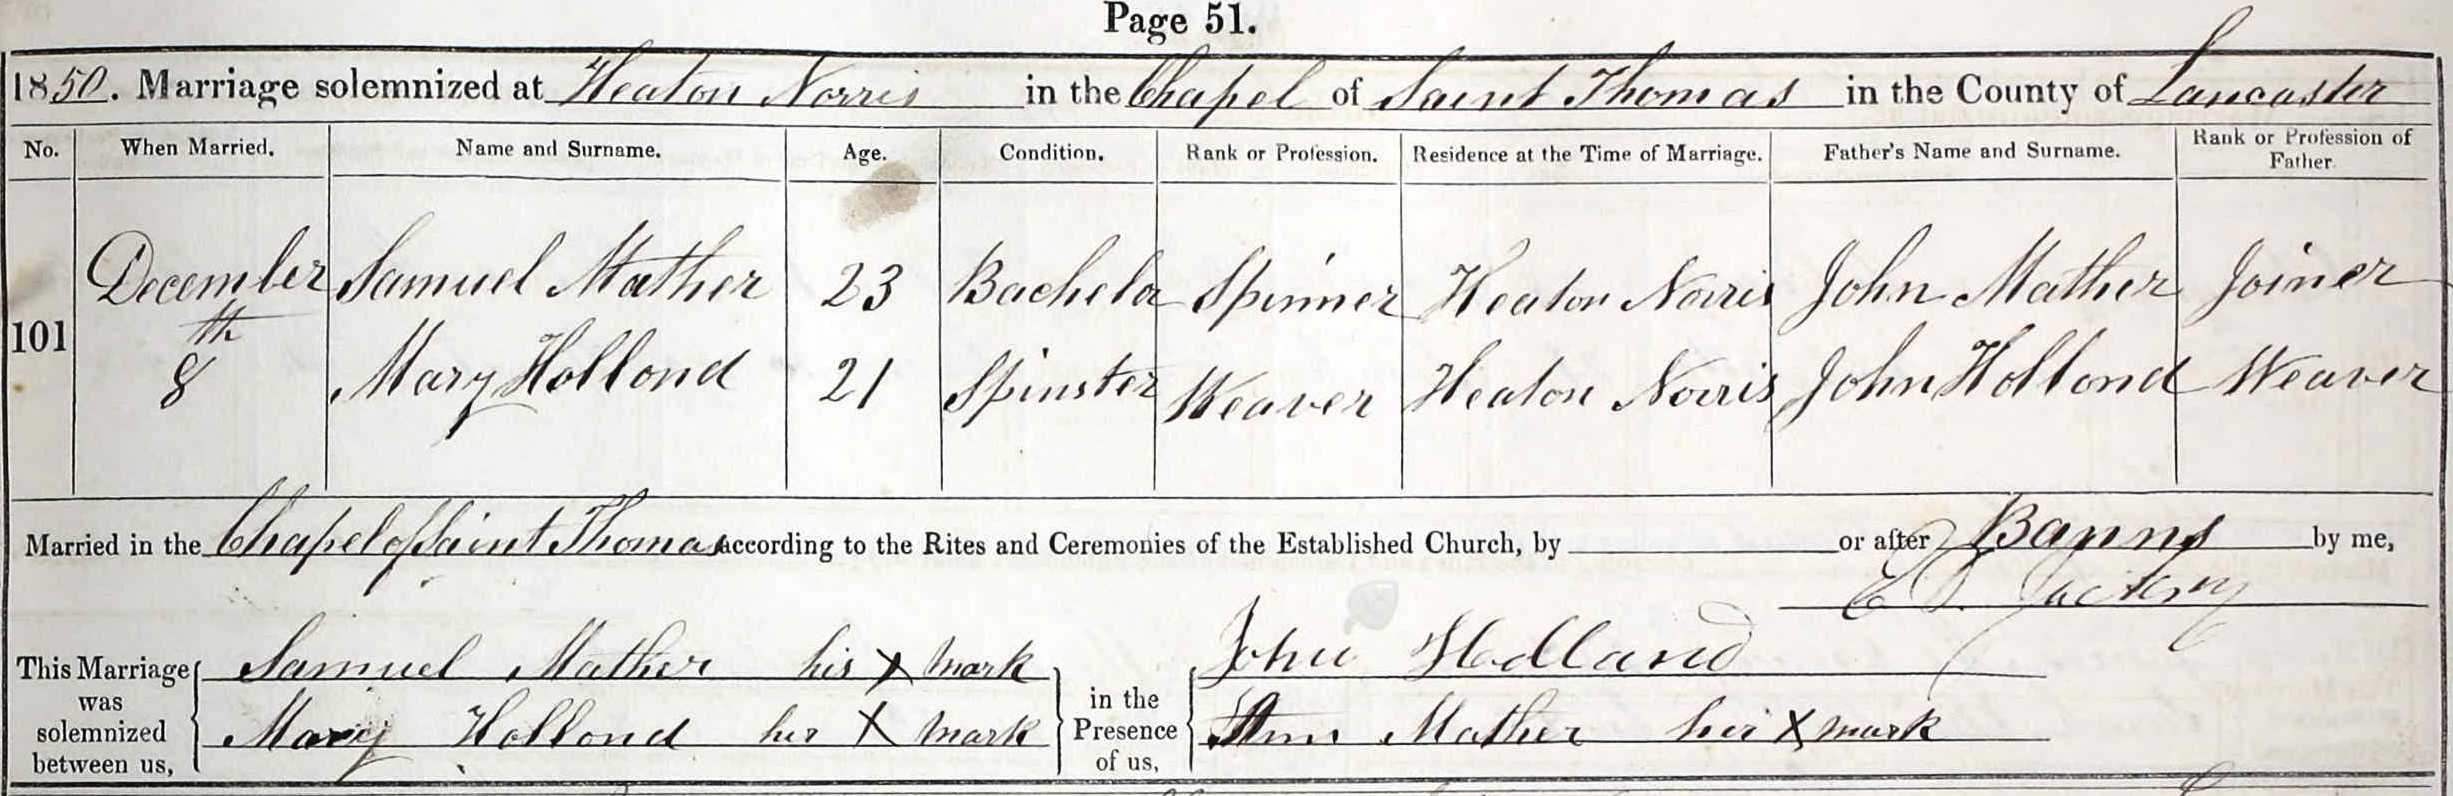 Page 51.
1850. Marriage solemnized at Heaton Norris in the Chapel of Saint Thomas in the County of Lancaster
No. When Married. Name and Surname. Age. Condition. Rank or Profession. Residence at the Time of Marriage. Father's Name and Surname. Rank or Profession of Father.
December Samuel Mather 23 Bachelor Spinner Heaton Norris John Mather Joiner
101 th
8 Mary Hollond 21 Spinster Weaver Heaton Norris John Hollond Weaver
Married in the Chapel of Saint Thomas according to the Rites and Ceremonies of the Established Church, by or after Banns by me,
This Marriage was solemnized between us,
Samuel Mather his X mark
Mary Hollond her X mark
in the Presence of us,
John Holland
Ann Mather her X mark